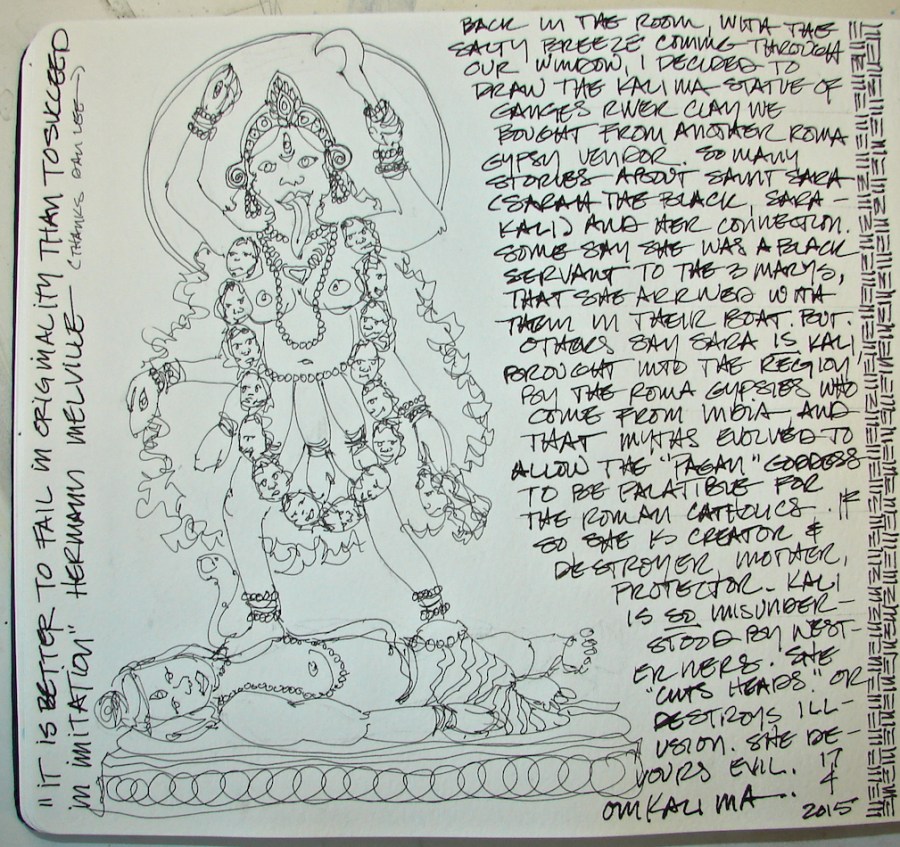 "IT IS BETTER TO FAIL IN ORIGINALITY THAN TO SUCCEED
IN IMITATION" HERMANN MELVILLE (THANKS DAN LEE →)
BACK IN THE ROOM, WITH THE
SALTY BREEZE COMING THROUGH
OUR WINDOW, I DECIDED TO
DRAW THE KALI MA STATUE OF
GANGES RIVER CLAY WE
BOUGHT FROM ANOTHER ROMA
GYPSY VENDOR. SO MANY
STORIES ABOUT SAINT SARA
(SARAH THE BLACK, SARA-
KALI) AND HER CONNECTION.
SOME SAY SHE WAS A BLACK
SERVANT TO THE 3 MARYS,
THAT SHE ARRIVED WITH
THEM IN THEIR BOAT. BUT.
OTHERS SAY SARA IS KALI,
BROUGHT INTO THE REGION
BY THE ROMA GYPSIES WHO
COME FROM INDIA AND
THAT MYTHS EVOLVED TO
ALLOW THE "PAGAN" GODDESS
TO BE PALATIBLE FOR
THE ROMAN CATHOLICS.
SO SHE IS CREATOR &
DESTROYER, MOTHER,
PROTECTOR. KALI
IS SO MISUNDER-
STOOD BY WEST-
ERNERS. SHE
"CUTS HEADS." OR
DESTROYS ILL-
USION. SHE DE-
VOURS EVIL.
OM KALI MA..
17
4
2015